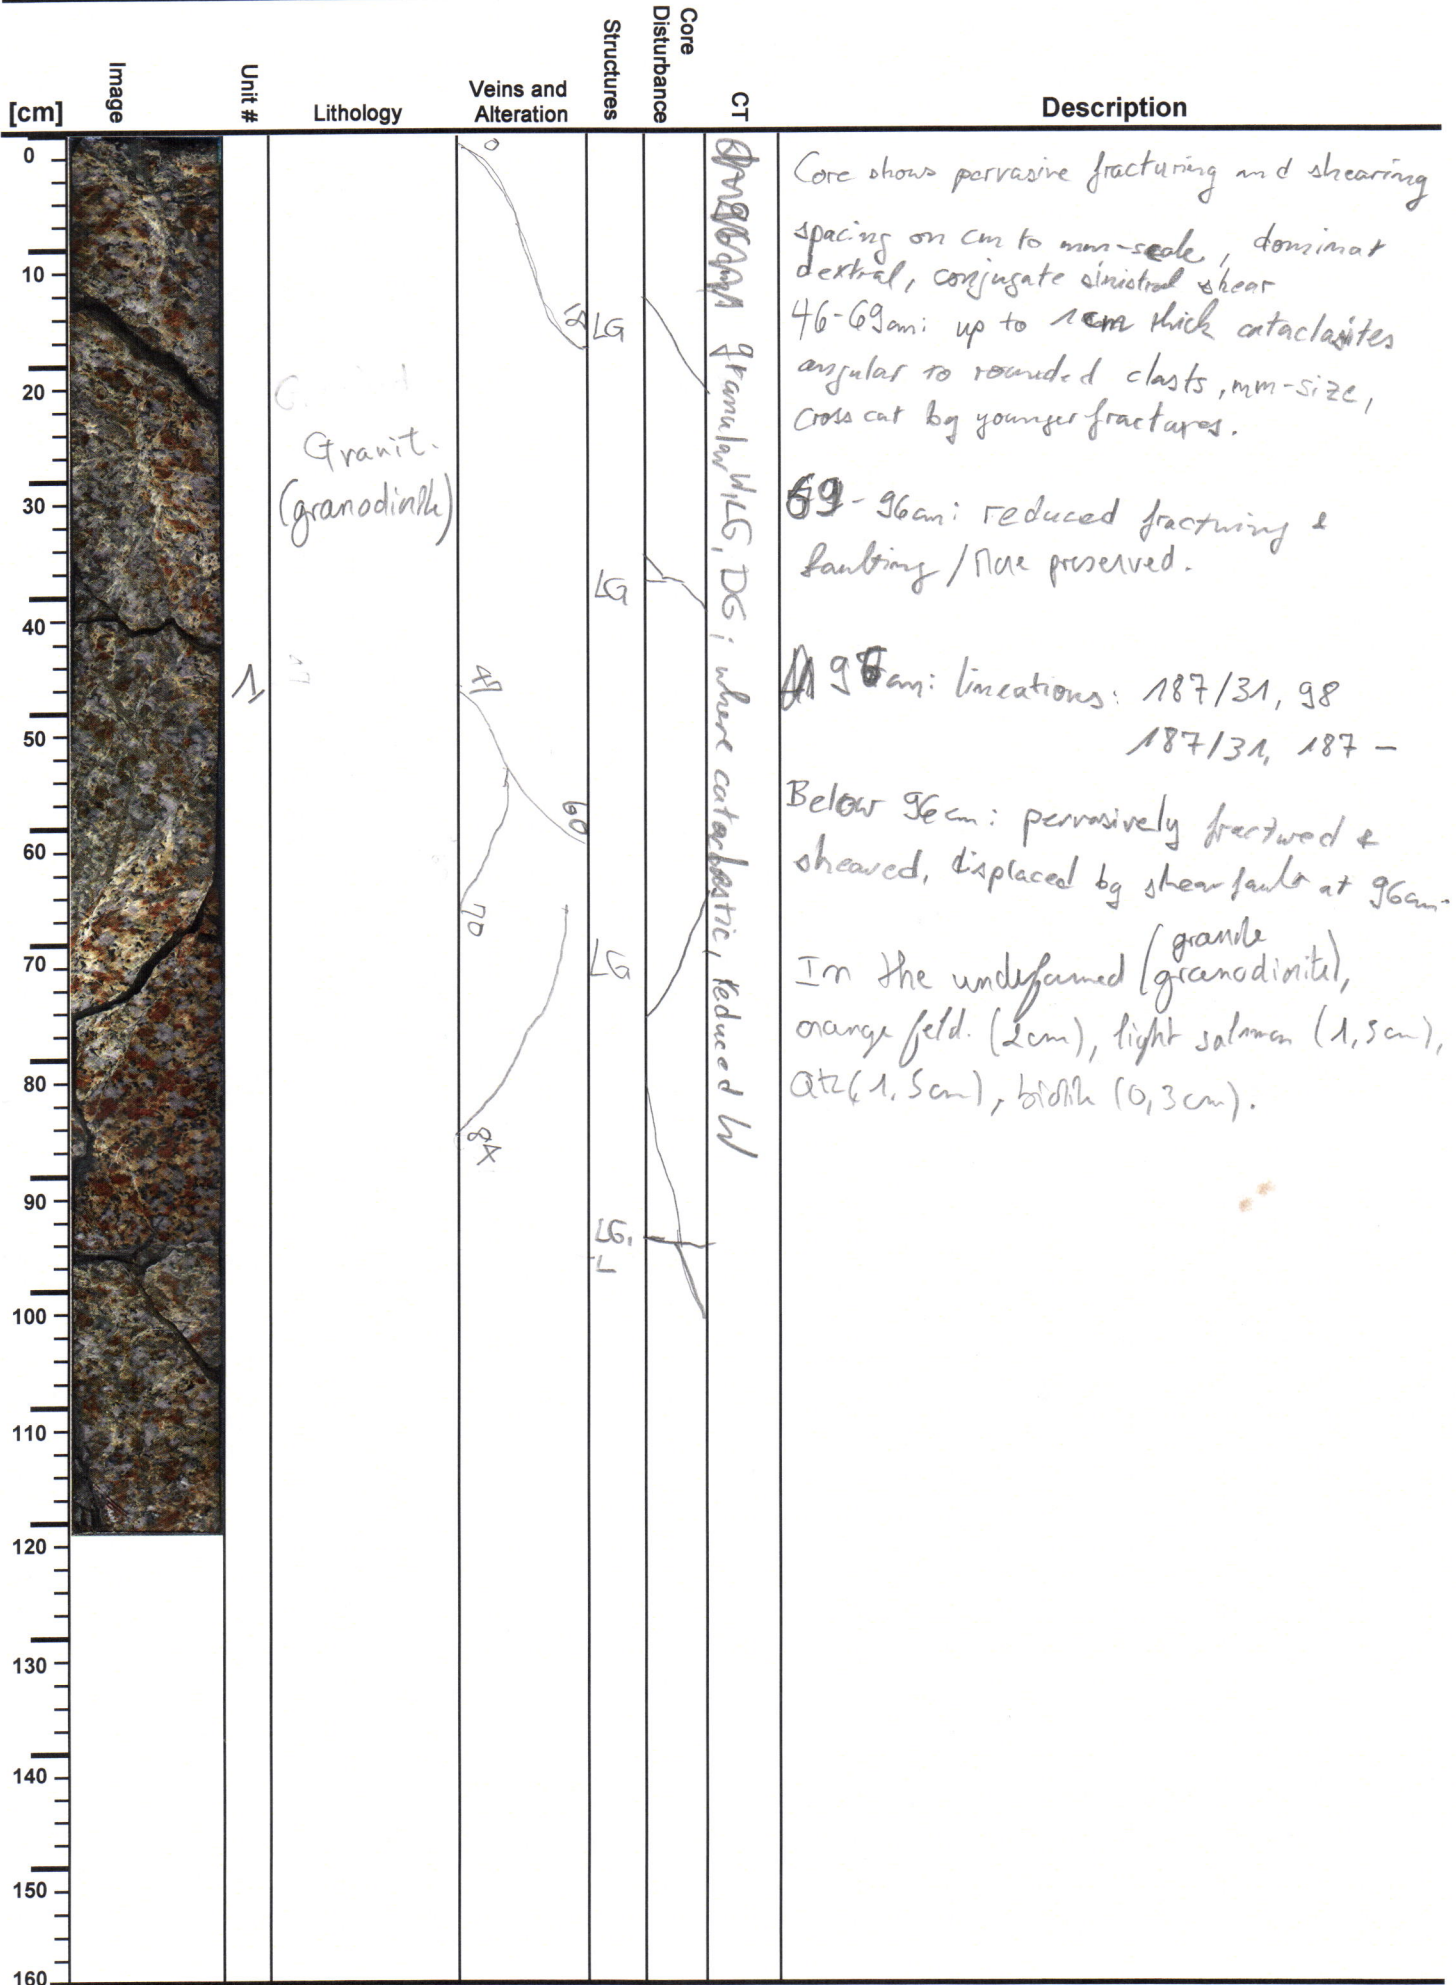 [cm]
Image
Unit #
Lithology
Veins and
Alteration
Structures
Core
Disturbance
CT
Description
0
10
20
30
40
50
60
70
80
90
100
110
120
130
140
150
160
1
Granit.
(granodinite)
0
47
60
70
84
LG
LG
LG
LG,
L
granular W, LG, DG; where cataclastic, reduced W
Core shows pervasive fracturing and shearing
spacing on cm to mm-scale, dominat
dextral, conjugate sinistral shear
46-69cm: up to 1cm thick cataclasites
angular to rounded clasts, mm-size,
cross cut by younger fractures.
69-96cm: reduced fracturing &
faulting / More preserved.
96cm: lineations: 187/31, 98
187/31, 187 -
Below 96cm: pervasively fractured &
sheared, displaced by shear fault at 96cm.
granite
In the undeformed (granodiorite),
orange feld. (2cm), light salmon (1,5cm),
Qtz (1,5cm), biotite (0,3cm).